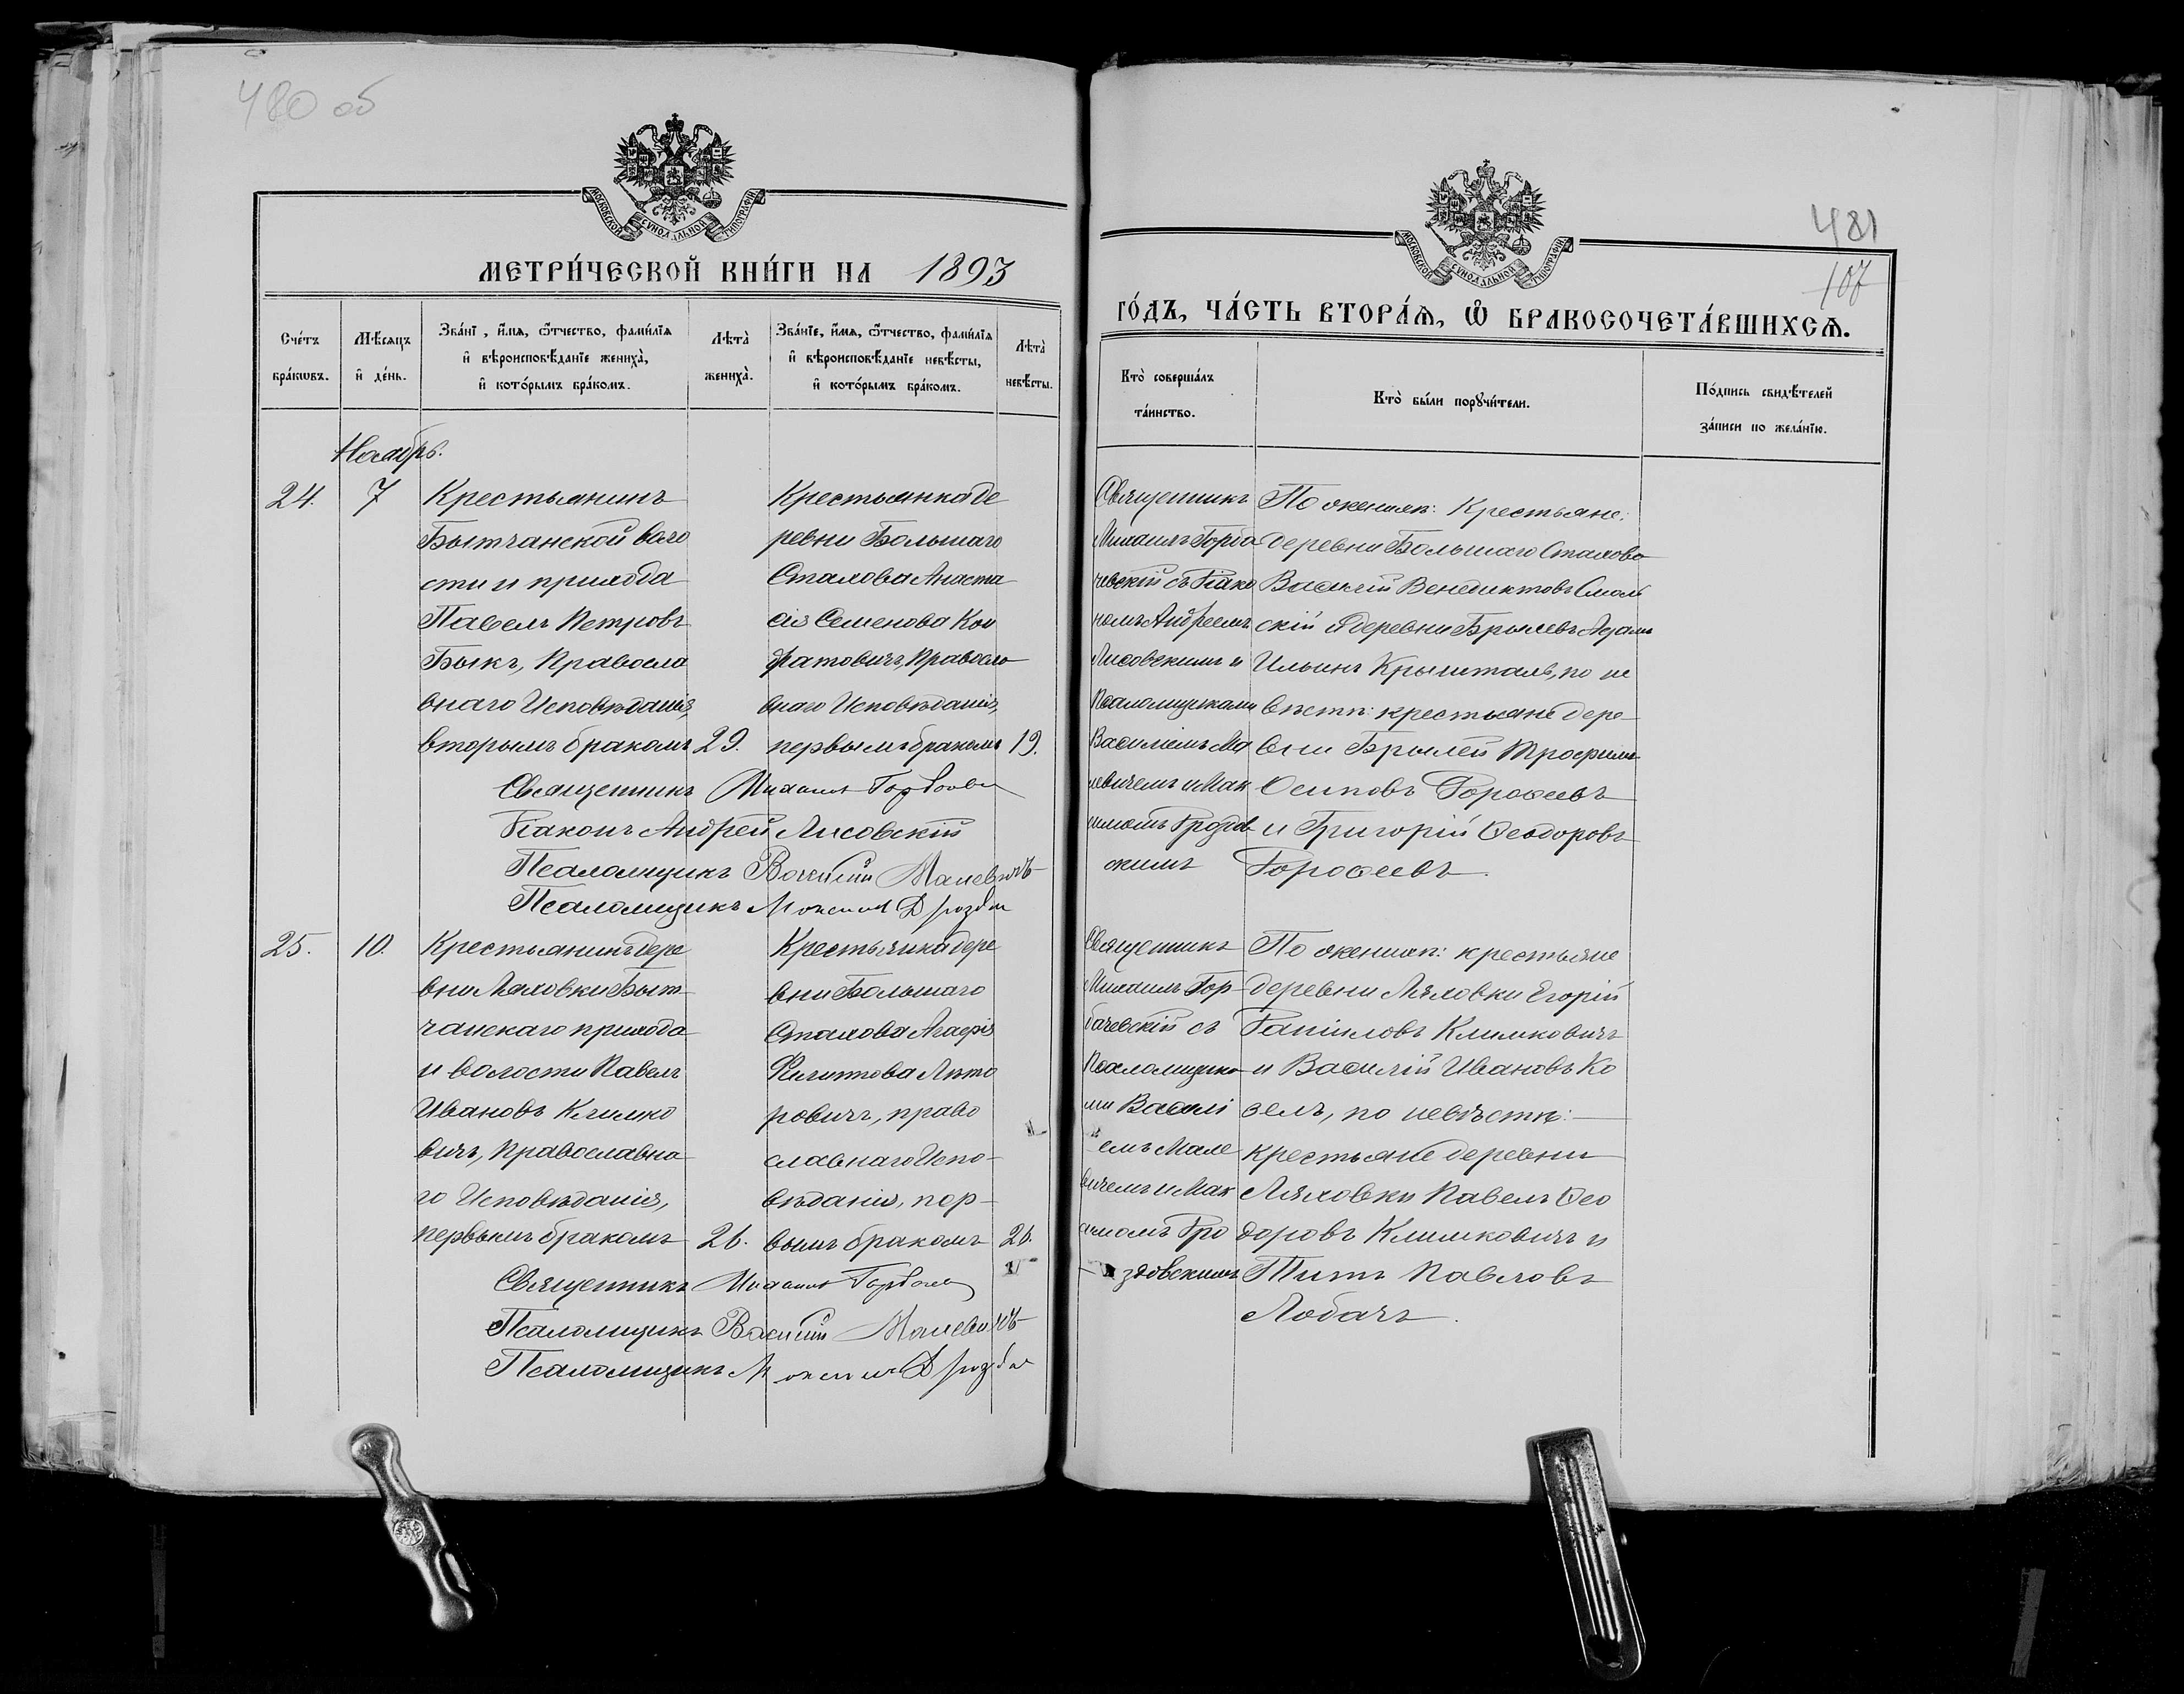 480 об
МОСКОВСКОЙ СѴНОДАЛЬНОЙ ТИПОГРАФІИ
МЕТРИ́ЧЕСКОЙ КНИ́ГИ НА 1893
Сче́тъ бра́кѡвъ.
Мѣ́сяцъ и҆ де́нь.
Зва́нї , и҆́мѧ, ѻ҆́тчество, фами́лїѧ и҆ вѣроисповѣ́данїе жениха̀, и҆ кото́рымъ бра́комъ.
Лѣта̀ жениха̀.
Зва́нїе, и҆́мѧ, ѻ҆́тчество, фами́лїѧ и҆ вѣроисповѣ́данїе невѣ́сты, и҆ кото́рымъ бра́комъ.
Лѣта̀ невѣ́сты.
Ноябрь.
24.
7
Крестьянинъ
Бытчанской воло
сти и прихода
Павелъ Петровъ
Быкъ, Правосла
внаго Исповѣданія,
вторымъ бракомъ
29.
Крестьянка де
ревни Большаго
Стахова Анаста
сія Семенова Кон
дратовичъ, Правосла
внаго Исповѣданія,
первымъ бракомъ
19.
Священникъ Михаилъ
Діаконъ Андрей Лисовскій
Псаломщикъ Василій Малевичъ
Псаломщикъ Максимъ
25.
10.
Крестьянинъ дере
вни Ляховки Быт-
чанскаго прихода
и волости Павелъ
Ивановъ Климко
вичъ, Православна
го Исповѣданія,
первымъ бракомъ
26.
Крестьянка дере
вни Большаго
Стахова Агафія
Филиппова
ровичъ, право
славнаго Испо-
вѣданія, пер-
вымъ бракомъ
Священникъ Михаилъ
Псаломщикъ Василій Малевичъ
Псаломщикъ Максимъ
481
107
МОСКОВСКОЙ СѴНОДАЛЬНОЙ ТИПОГРАФІИ
ГО́ДЪ, ЧА́СТЬ ВТОРА́Ѧ, Ѡ҆ БРАКОСОЧЕТА́ВШИХСѦ.
Кто̀ соверша́лъ та́инство.
Кто̀ бы́ли порꙋчи́тели.
По́дпись свидѣ́телей за́писи по жела́нїю.
Священникъ
Михаилъ Горба
чевскій съ Діако
номъ Андреемъ
Лисовскимъ и
Псаломщиками
Василіемъ Ма
левичемъ и Мак
симомъ Дроздов
скимъ
По женихѣ: Крестьяне:
деревни Большаго Стахова
Василій Венедиктовъ Смоль
скій и деревни Брилевъ Адамъ
Ильинъ Крышталь, по не
вѣстѣ: крестьяне дере-
вни Брилей Трофимъ
Осиповъ Дорофеевъ
и Григорій Ѳеодоровъ
Дорофеевъ.
Священникъ
Михаилъ Гор-
бачевскій съ
Псаломщика-
ми Васілі
емъ Мале
вичемъ и Мак
симомъ Дро
здовскимъ
По женихѣ: крестьяне
деревни Ляховки Егорій
Даніиловъ Климковичъ
и Василій Ивановъ Ко
зелъ, по невѣстѣ:
крестьяне деревни
Ляховки Павелъ Ѳео
доровъ Климковичъ и
Титъ Павловъ
Лобачъ.